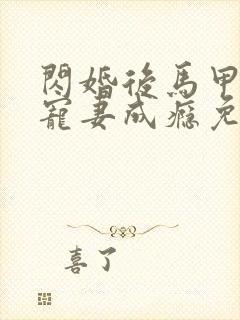 閃婚後馬甲
寵妻成癮免
喜了